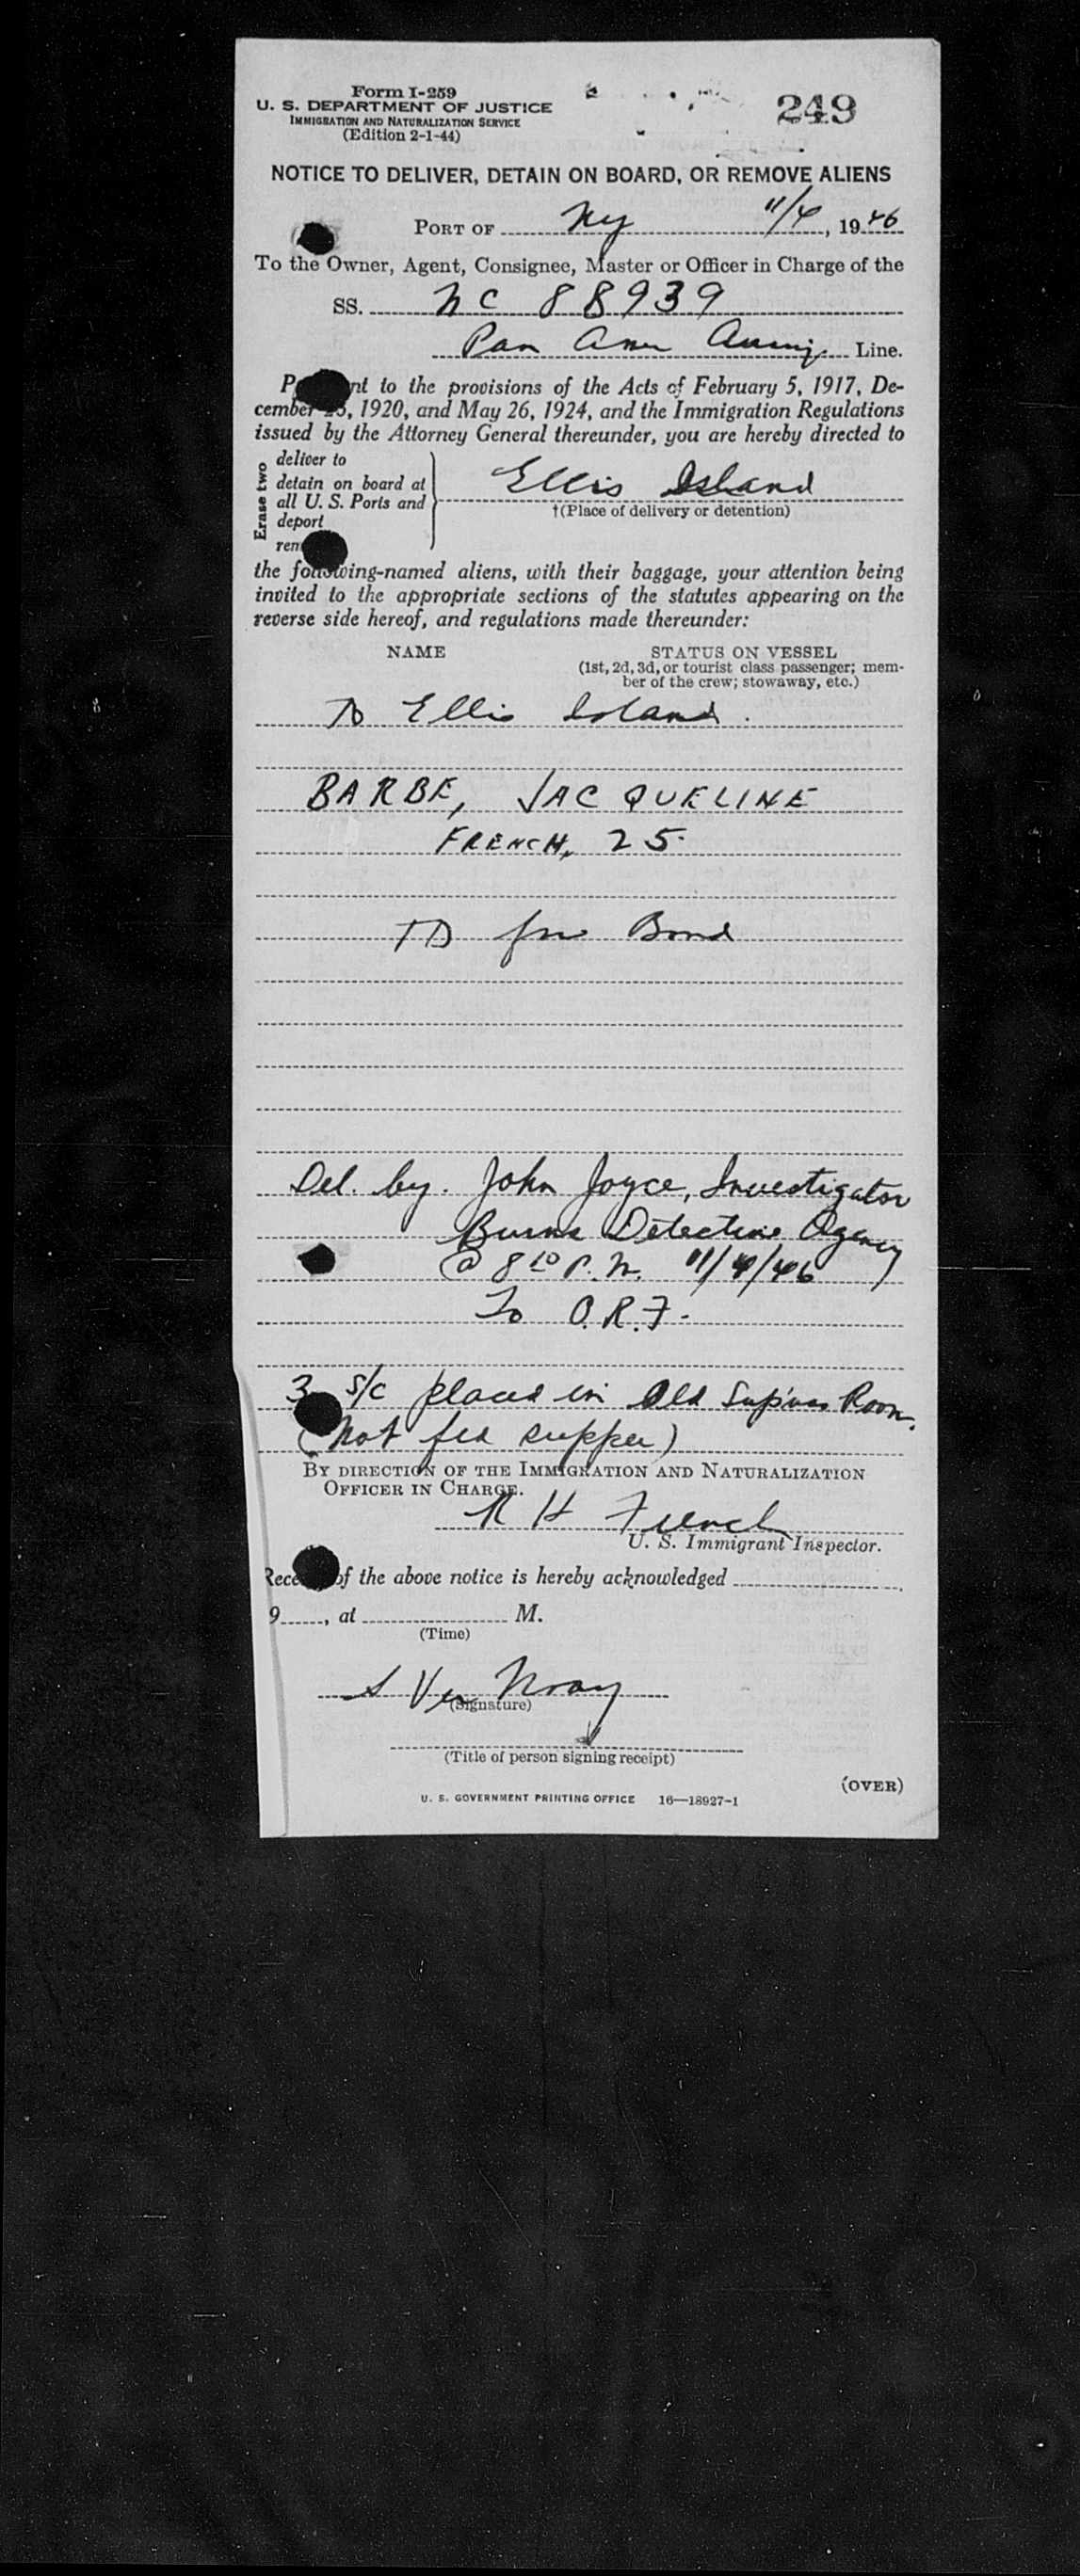 Form I-259
U. S. DEPARTMENT OF JUSTICE
IMMIGRATION AND NATURALIZATION SERVICE
(Edition 2-1-44)
249
NOTICE TO DELIVER, DETAIN ON BOARD, OR REMOVE ALIENS
PORT OF NY 11/4, 1946
To the Owner, Agent, Consignee, Master or Officer in Charge of the
SS. NC 88939
Pan Amer Line.
nt to the provisions of the Acts of February 5, 1917, De-
cember , 1920, and May 26, 1924, and the Immigration Regulations
issued by the Attorney General thereunder, you are hereby directed to
Erase two
deliver to
detain on board at
all U. S. Ports and
deport
rem
Ellis Island
†(Place of delivery or detention)
the following-named aliens, with their baggage, your attention being
invited to the appropriate sections of the statutes appearing on the
reverse side hereof, and regulations made thereunder:
NAME
STATUS ON VESSEL
(1st, 2d, 3d, or tourist class passenger; mem-
ber of the crew; stowaway, etc.)
To Ellis Island.
BARBE, JACQUELINE
FRENCH, 25.
TD for Bond
Del. by. John Joyce, Investigator
Burns Detective Agency
@ 8 10 P.M. 11/4/46
To O.R.F.
3 S/C placed in Old Sup'vrs Room.
(Not fed supper)
BY DIRECTION OF THE IMMIGRATION AND NATURALIZATION
OFFICER IN CHARGE.
R H French
U. S. Immigrant Inspector.
Rece of the above notice is hereby acknowledged
9, at M.
(Time)
S Ver
(Signature)
(Title of person signing receipt)
(OVER)
U. S. GOVERNMENT PRINTING OFFICE 16—18927-1